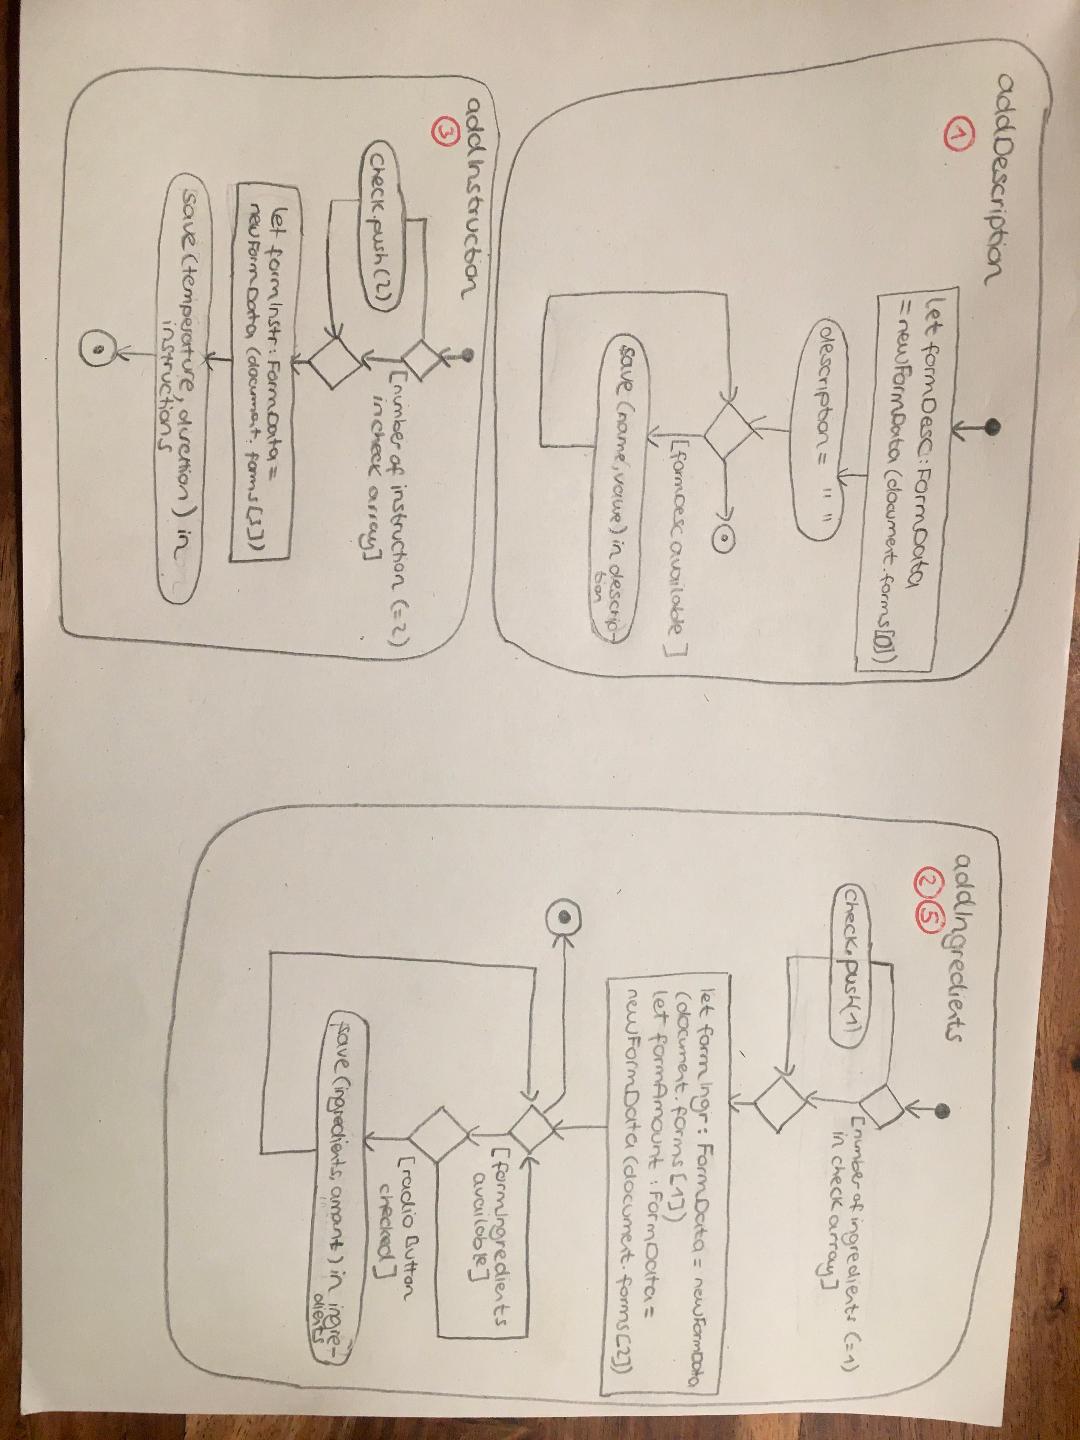 addDescription
1
let formDesc:FormData
=newFormData(document.forms[0])
description= " "
[formDesc available ]
save (name,value) in descrip-
tion
addInstruction
3
[number of instruction (=2)
in check array]
check.push(2)
let formInstr:FormData=
newFormData (document. forms[3])
save(temperature, duration) in
instructions
addIngredients
2 5
[number of ingredients (=1)
in check array]
check.push(1)
let formIngr: FormData = newFormData
(document.forms [1])
let formAmount :FormData=
newFormData (document.forms[2])
[formIngredients
available]
[radio Button
checked]
save (ingredients, amount) in ingre-
dients